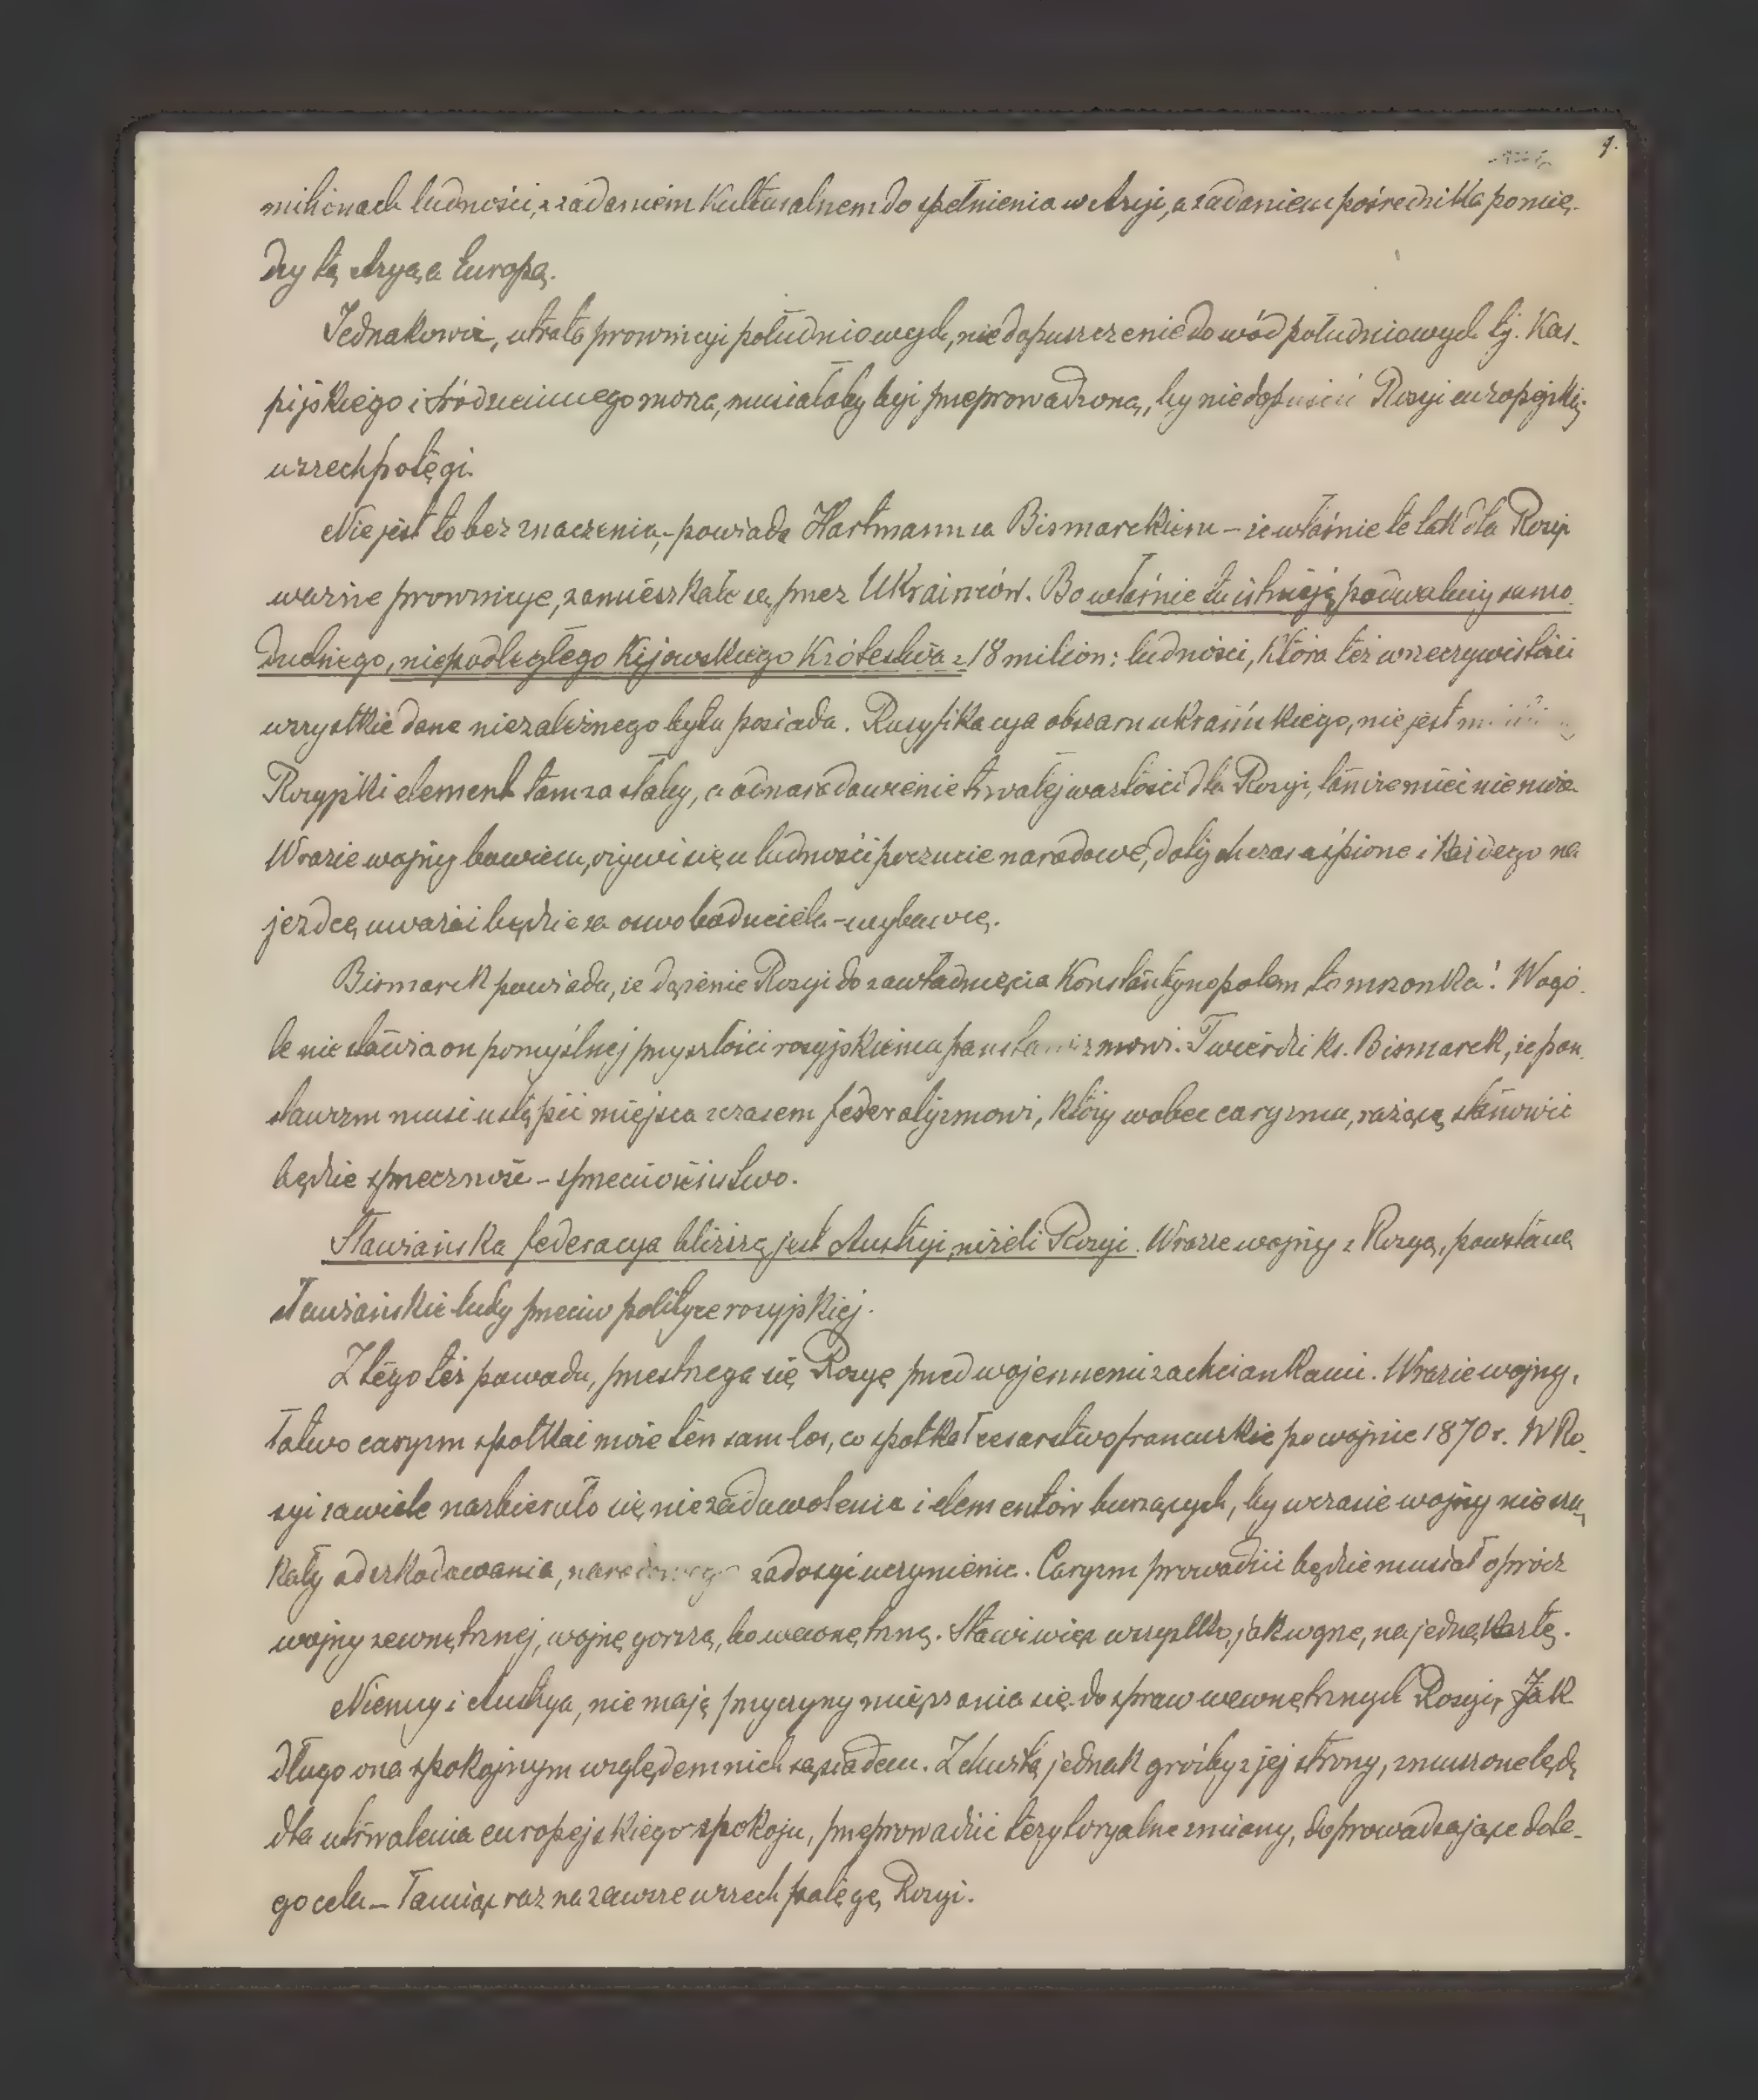 9.
milionach ludności, z zadaniem kulturalnem do spełnienia w Azyi, a zadaniem pośrednika pomię-
dzy tą Azyą a Europą.
Jednakowoż, utrata prowincyi południowych, niedopuszczenie do wód południowych tj. Kas-
pijskiego i śródziemnego morza, musiałaby być przeprowadzoną, by nie dopuścić Rosyi europejskiej
wszechpotęgi.
Nie jest to bez znaczenia, - powiada Hartmann za Bismarckiem - że właśnie te tak dla Rosyi
ważne prowincye, zamieszkałe są przez Ukraińców. Bo właśnie tu istnieją podwaliny samo
dzielnego, niepodległego Kijowskiego Królestwa z 18 milion: ludności, która też w rzeczywistości
wszystkie dane niezależnego bytu posiada. Rusyfikacya obszaru ukraińskiego, nie jest
Rosyjski element tam za słaby, a odnarodowienie trwałej wartości dla Rosyi, tam że mieć nie może.
W razie wojny bowiem, ożywi się u ludności poczucie narodowe, dotychczas uśpione i każdego na
jezdcę uważać będzie za oswobodziciela - wybawcę.
Bismarck powiada, że dążenie Rosyi do zawładnięcia Konstantynopolem to mrzonka! Wogó-
le nie stawia on pomyślnej przyszłości rosyjskiemu panslawizmowi. Twierdzi ks. Bismarck, że pan-
slawizm musi ustąpić miejsca z czasem federalizmowi, który wobec caryzmu, rażącą stanowić
będzie sprzeczność - sprzeciwieństwo.
Sławiańska federacya bliższą jest Austryi, niżeli Rosyi. W razie wojny z Rosyą, powstaną
sławiańskie ludy przeciw polityce rosyjskiej.
Z tego też powodu, przestrzega się Rosyę przed wojennemi zachciankami. W razie wojny,
łatwo caryzm spotkać może ten sam los, co spotkał cesarstwo francuskie po wojnie 1870 r. W Ro-
syi za wiele nazbierało się niezadowolenia i elementów burzących, by w czasie wojny nie szu
kały odszkodowania, narodowego zadosyćuczynienia. Caryzm prowadzić będzie musiał oprócz
wojny zewnętrznej, wojnę gorszą, bo wewnętrzną. Stawi więc wszystko, jak w grze, na jedną kartę.
Niemcy i Austrya, nie mają przyczyny mięszania się do spraw wewnętrznych Rosyi, Jak
długo ona spokojnym względem nich sąsiadem. Z chwilą jednak groźby z jej strony, zmuszone będą
dla utrwalenia europejskiego spokoju, przeprowadzić terytoryalne zmiany, doprowadzające do te-
go celu - łamiąc raz na zawsze wszechpotęgę Rosyi.